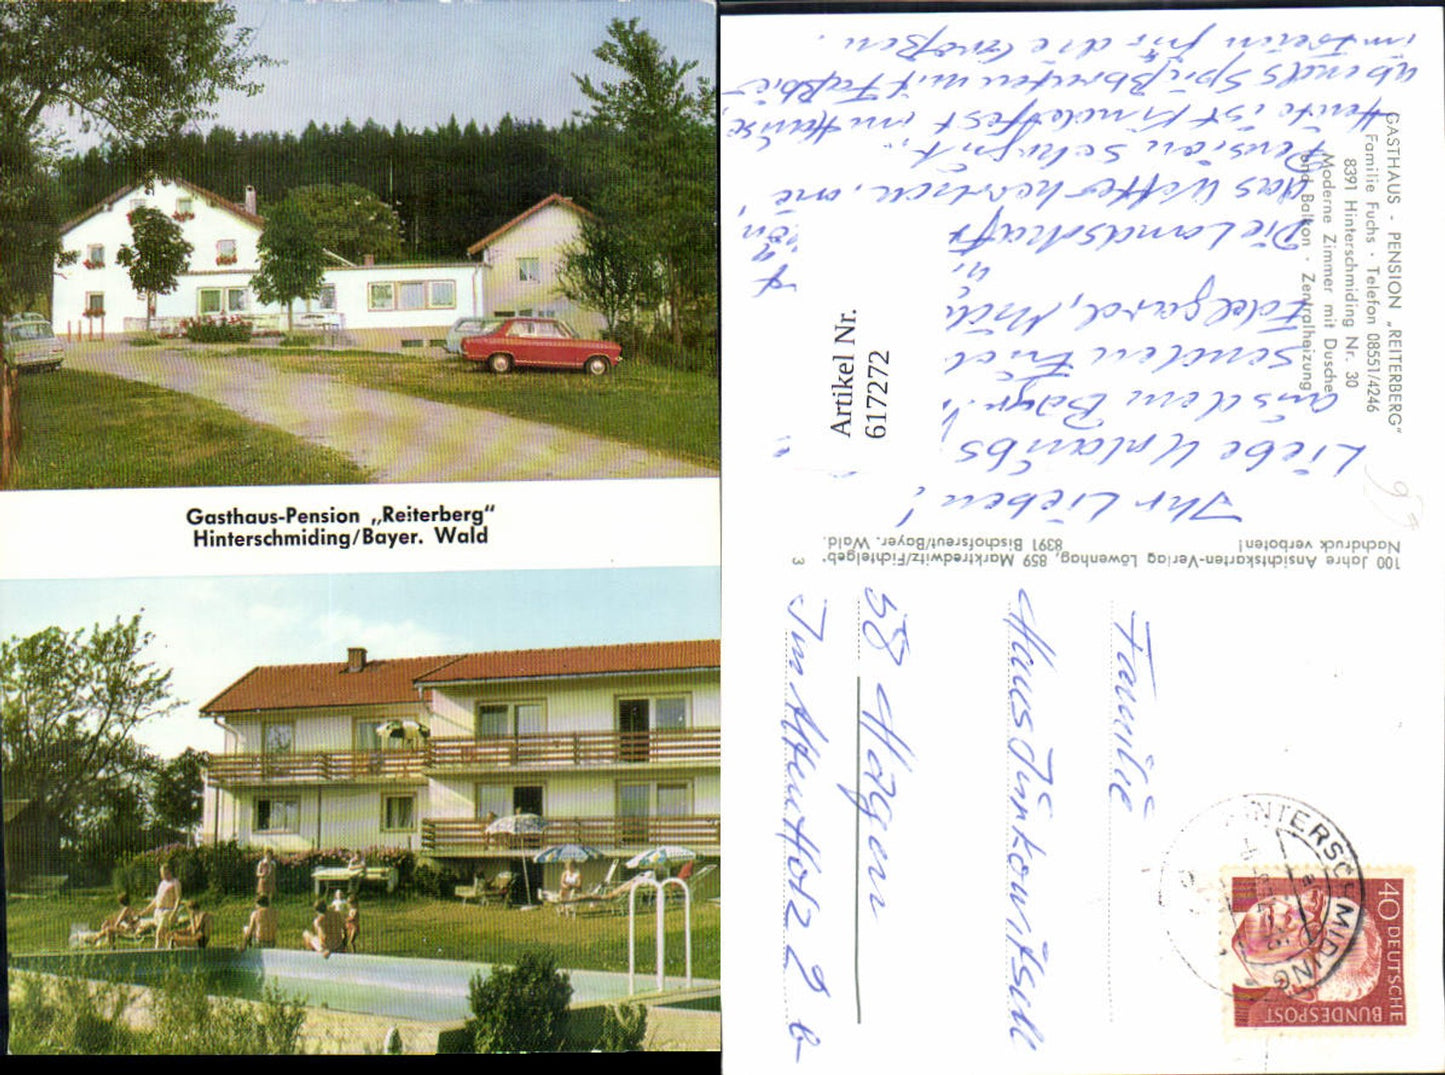 Gasthaus-Pension „Reiterberg"
Hinterschmiding/Bayer. Wald
GASTHAUS - PENSION „REITERBERG"
Familie Fuchs · Telefon 08551/4246
8391 Hinterschmiding Nr. 30
Moderne Zimmer mit Dusche
und Balkon · Zentralheizung
Artikel Nr.
617272
Ihr Lieben!
Liebe Urlaubs
aus dem Bayr.
senden Euch
Edelgard,
u.
Die Landschaft
das Wetter herrlich, die
Pension schön
Heute ist Kinderfest im Hause,
abends Spießbraten mit Faßbier
im Freien für die Großen.
100 Jahre Ansichtskarten-Verlag Löwenhag, 859 Marktredwitz/Fichtelgeb.
Nachdruck verboten!
8391 Bischofsreut/Bayer. Wald.
3
Familie
Hans
58 Hagen
Im Alten Holz 2 b
HINTERSCHMIDING
40 DEUTSCHE
BUNDESPOST